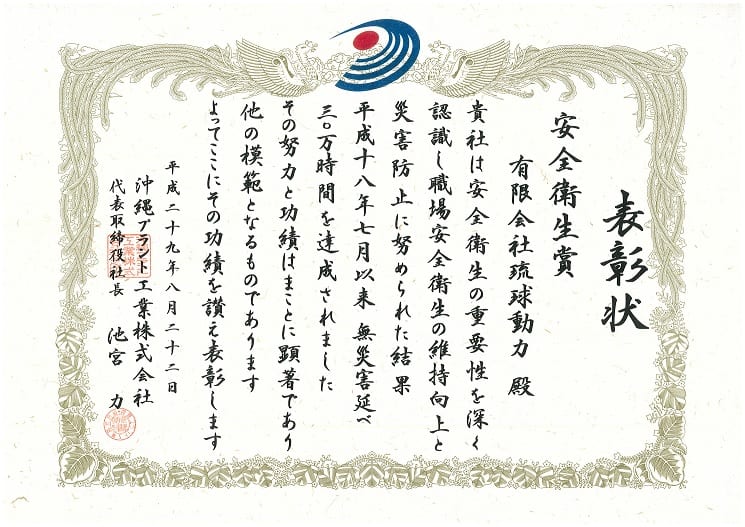 表彰状
安全衛生賞
有限会社琉球動力 殿
貴社は安全衛生の重要性を深く
認識し職場安全衛生の維持向上と
災害防止に努められた結果
平成十八年七月以来 無災害延べ
三〇万時間を達成されました
その努力と功績はまことに顕著であり
他の模範となるものであります
よってここにその功績を讃え表彰します
平成二十九年八月二十二日
沖縄プラント工業株式会社
代表取締役社長 池宮 力